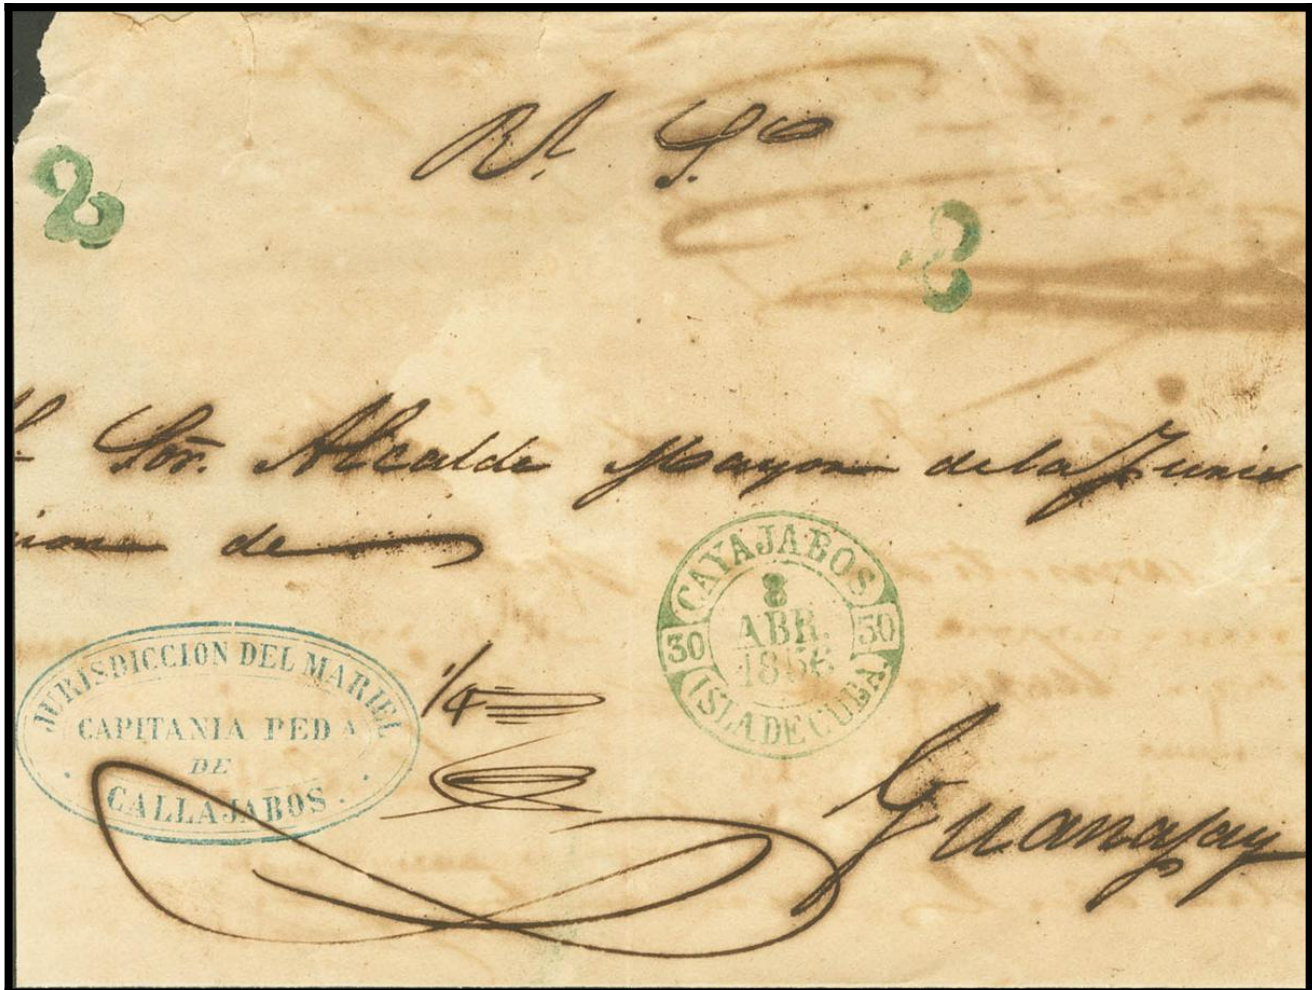 Rl. So
2
8
Al Sor. Alcalde Mayor de la Juris
ciona de
CAYAJABOS
8
ABR.
1856
30 30
ISLA DE CUBA
JURISDICCION DEL MARIEL
CAPITANIA PED A
DE
CALLAJABOS.
1/4
Guanajay